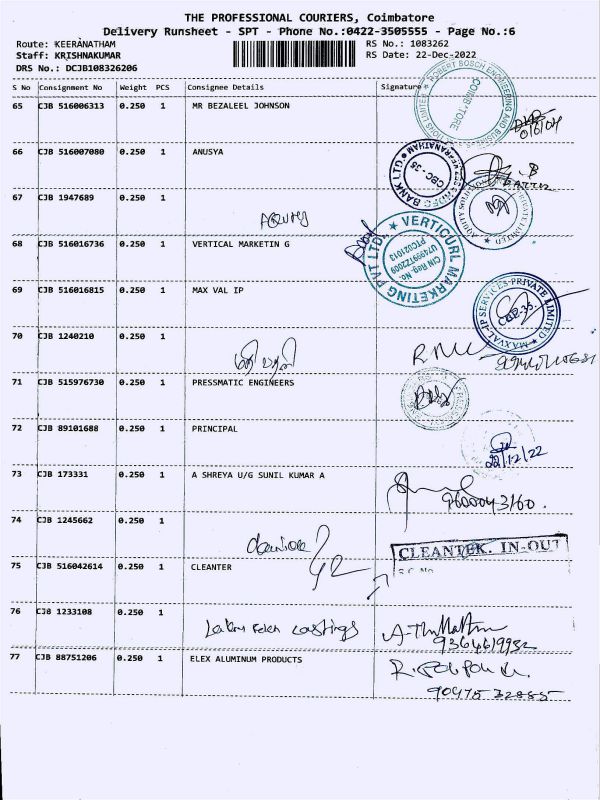 THE PROFESSIONAL COURIERS, Coimbatore
Delivery Runsheet - SPT - Phone No.:0422-3505555 - Page No.:6
Route: KEERANATHAM
RS No.: 1083262
Staff: KRISHNAKUMAR
RS Date: 22-Dec-2022
DRS No.: DCJB108326206
S No Consignment No Weight PCS Consignee Details Signature
65 CJB 516006313 0.250 1 MR BEZALEEL JOHNSON
COIMB'TORE
66 CJB 516007080 0.250 1 ANUSYA
CBC-35
67 CJB 1947689 0.250 1
68 CJB 516016736 0.250 1 VERTICAL MARKETIN G
VERTICURL MARKETING PVT LTD.
CIN Reg. No.
U74999TZ2009
PTC021013
69 CJB 516016815 0.250 1 MAX VAL IP
MAXVAL-IP SERVICES PRIVATE LIMITED
70 CJB 1240210 0.250 1
71 CJB 515976730 0.250 1 PRESSMATIC ENGINEERS
72 CJB 89101688 0.250 1 PRINCIPAL
22/12/22
73 CJB 173331 0.250 1 A SHREYA U/G SUNIL KUMAR A
74 CJB 1245662 0.250 1
CLEANTEK. IN-OUT
75 CJB 516042614 0.250 1 CLEANTER
76 CJB 1233108 0.250 1 castings
9364619932
77 CJB 88751206 0.250 1 ELEX ALUMINUM PRODUCTS